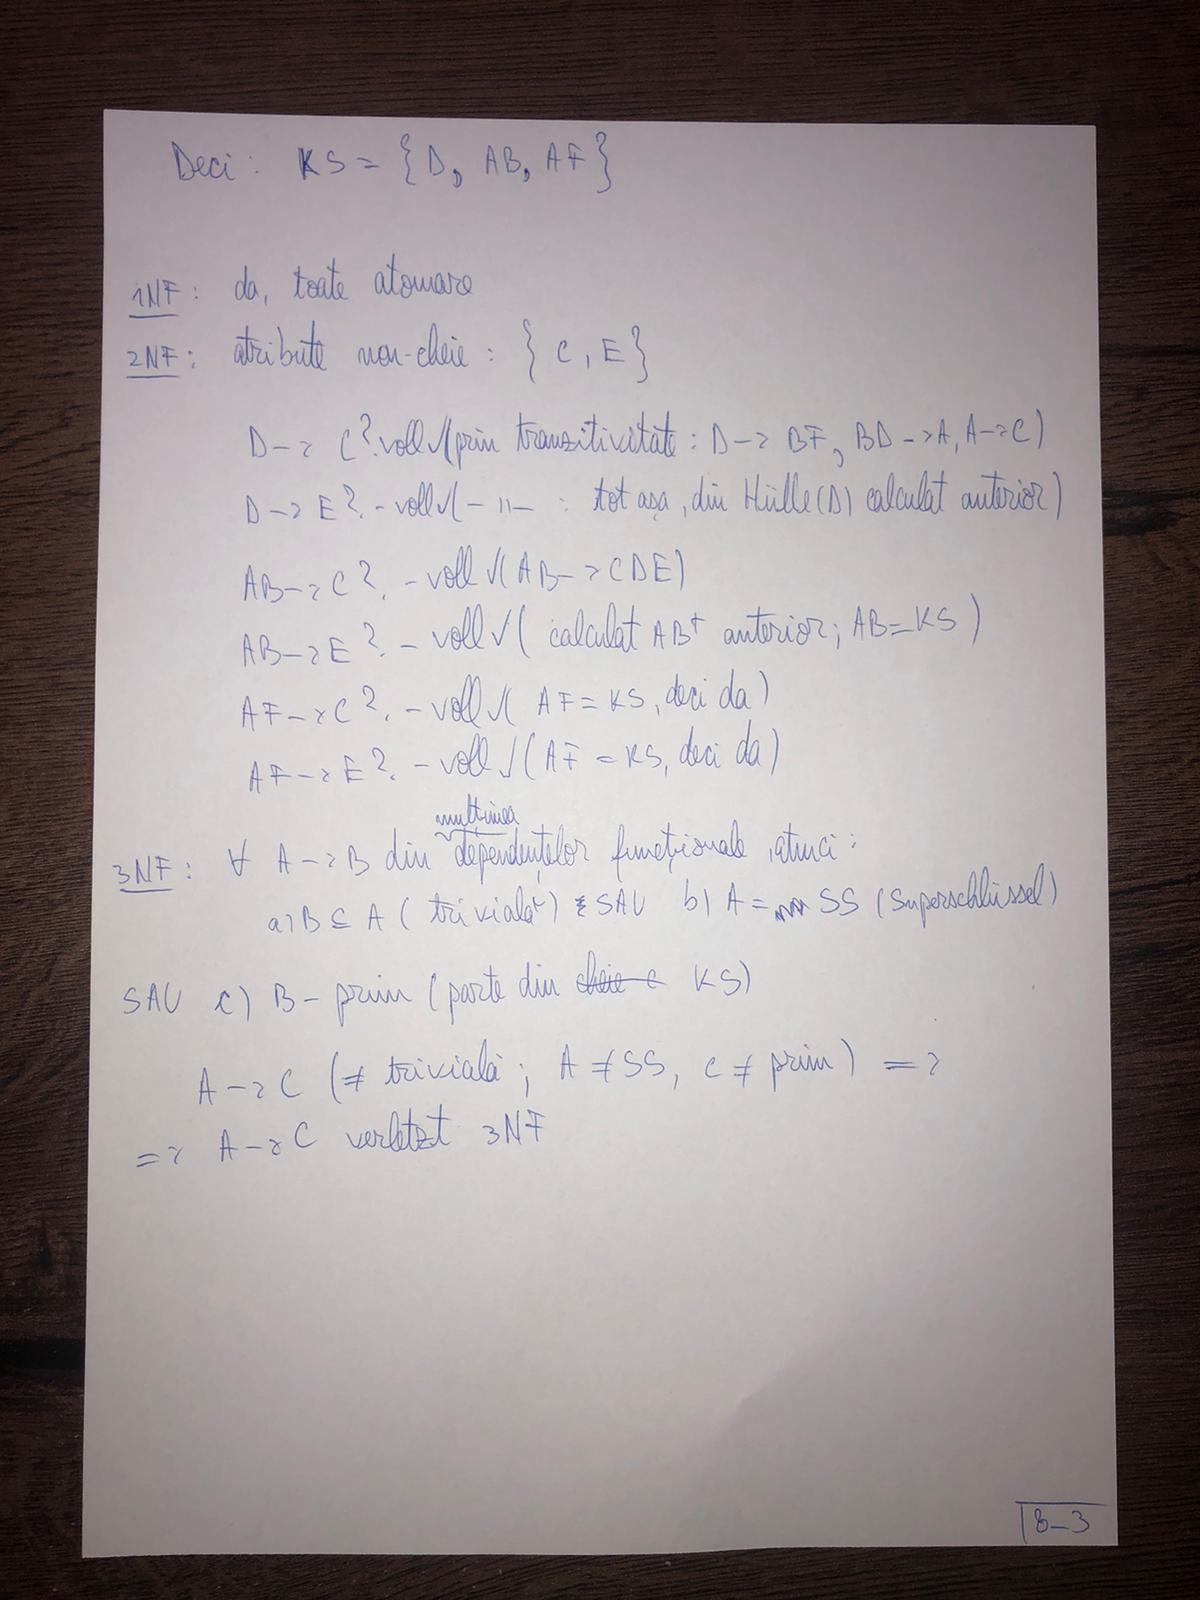 Deci: KS = {D, AB, AF}
1NF: da, toate atomare
2NF: atribute non-cheie: {C, E}
D -> C? voll √(prin tranzitivitate: D -> BF, BD -> A, A -> C)
D -> E? - voll √( - 11 - : tot așa, din Hülle(D) calculat anterior)
AB -> C? - voll √(AB -> CDE)
AB -> E? - voll √( calculat AB+ anterior; AB = KS)
AF -> C? - voll √( AF = KS, deci da)
AF -> E? - voll √(AF = KS, deci da)
mulțimea
3NF: ∀ A -> B din dependențelor funcționale, atunci:
a) B ⊆ A (trivială) SAU b) A = SS (Superschlüssel)
SAU c) B - prim (parte din cheie c KS)
A -> C (≠ trivială; A ≠ SS, C ≠ prim) =>
=> A -> C verletzt 3NF
8-3